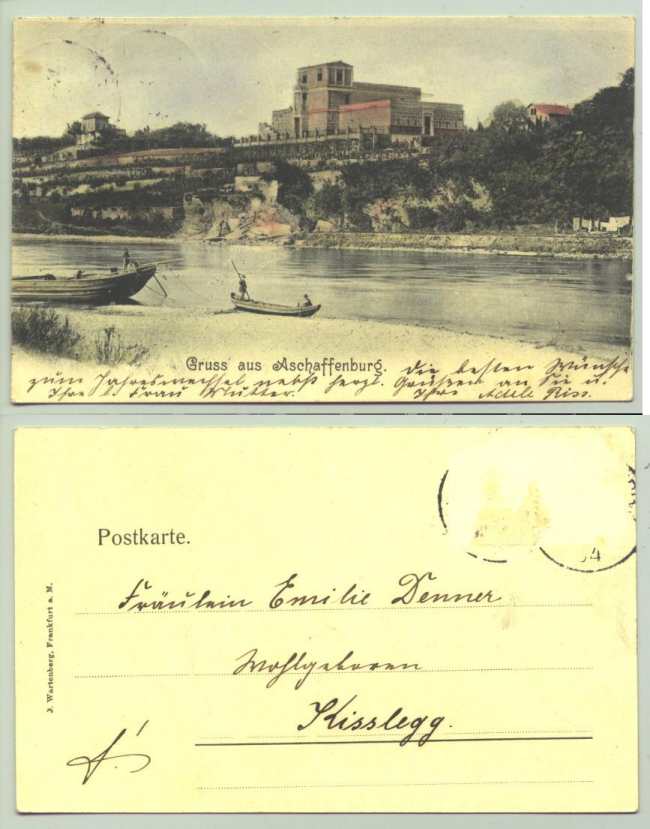 Gruss aus Aschaffenburg. Die besten Wünsche
zum Jahreswechsel nebst herzl. Grüßen an Sie u.
Ihre Frau Mutter. Ihre Adele Riss.
Postkarte.
J. Wartenberg, Frankfurt a. M.
Fräulein Emilie Denner
Wohlgeboren
Kisslegg.